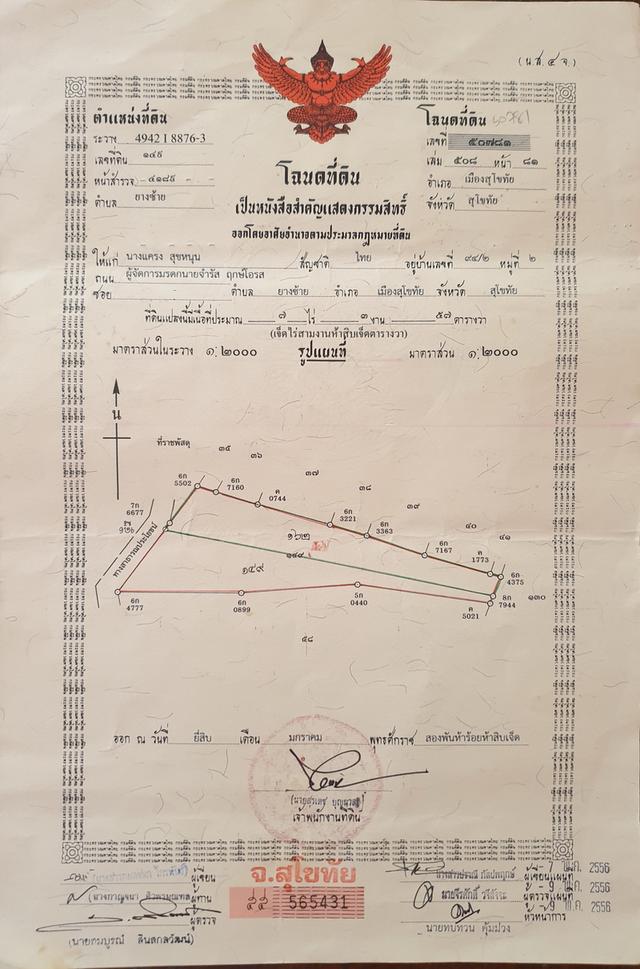 (น.ส. ๔ จ.)
ตำแหน่งที่ดิน
ระวาง 4942 I 8876-3
เลขที่ดิน ๑๔๙
หน้าสำรวจ ๔๑๘๙
ตำบล ยางซ้าย
โฉนดที่ดิน
เลขที่ ๕๐๗๘๑
เล่ม ๕๐๘ หน้า ๘๑
อำเภอ เมืองสุโขทัย
จังหวัด สุโขทัย
โฉนดที่ดิน
เป็นหนังสือสำคัญแสดงกรรมสิทธิ์
ออกโดยอาศัยอำนาจตามประมวลกฎหมายที่ดิน
ให้แก่ นางแครง สุขหนุน สัญชาติ ไทย อยู่บ้านเลขที่ ๙๔/๒ หมู่ที่ ๒
ถนน ผู้จัดการมรดกนายจำรัส ฤกษ์โอรส
ซอย ตำบล ยางซ้าย อำเภอ เมืองสุโขทัย จังหวัด สุโขทัย
ที่ดินแปลงนี้มีเนื้อที่ประมาณ ๗ ไร่ ๓ งาน ๕๗ ตารางวา
(เจ็ดไร่สามงานห้าสิบเจ็ดตารางวา)
มาตราส่วนในระวาง ๑:๒๐๐๐ รูปแผนที่ มาตราส่วน ๑:๒๐๐๐
น
ที่ราชพัสดุ
๓๕
๓๖
๓๗
๓๘
๓๙
๔๐
๔๑
6ก 5502
6ก 7160
ค 0744
6ก 3221
6ก 3363
6ก 7167
ค 1773
6ก 4375
7ก 6677
ทางสาธารณประโยชน์
๑๖๒
๑๔๙
๑๕๙
8ก 7944
๑๓๐
6ก 4777
6ก 0899
5ก 0440
ค 5021
๕๘
ออก ณ วันที่ ยี่สิบ เดือน มกราคม พุทธศักราช สองพันห้าร้อยห้าสิบเจ็ด
เจ้าพนักงานที่ดิน
ผู้เขียน
ผู้ทาน
ผู้ตรวจ
(นายสมบูรณ์ ลินสกลวัฒน์)
จ.สุโขทัย
๕๕ 565431
ผู้เขียนแผนที่
ผู้ตรวจแผนที่
หัวหน้าการ
2556
- 9 พ.ค. 2556
9 พ.ค. 2556
นายทบทวน คุ้มม่วง